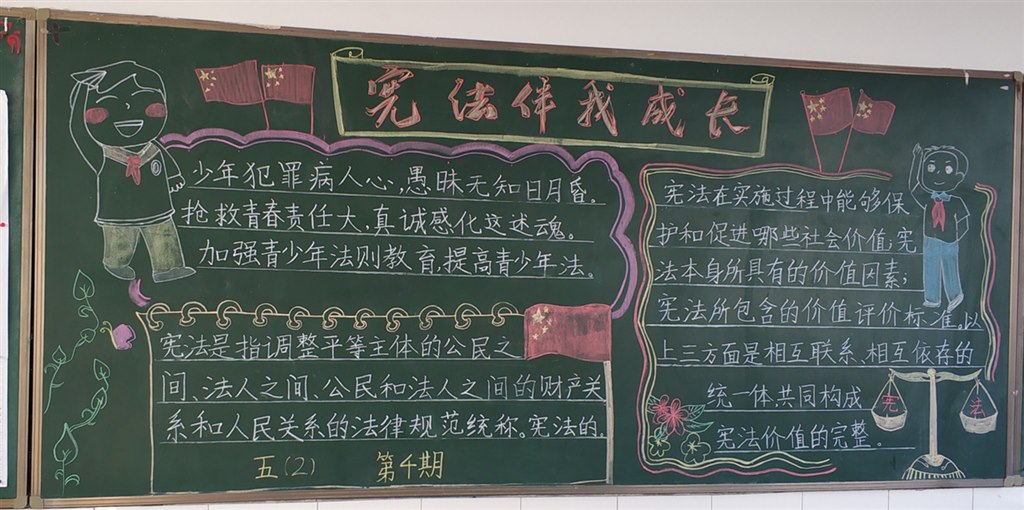 宪法伴我成长
少年犯罪病人心,愚昧无知日月昏。
抢救青春责任大,真诚感化这迷魂。
加强青少年法则教育,提高青少年法。
宪法是指调整平等主体的公民之
间、法人之间、公民和法人之间的财产关
系和人民关系的法律规范统称。宪法的
五(2) 第4期
宪法在实施过程中能够保
护和促进哪些社会价值,宪
法本身所具有的价值因素;
宪法所包含的价值评价标准。以
上三方面是相互联系、相互依存的
统一体,共同构成
宪法价值的完整。
宪 法